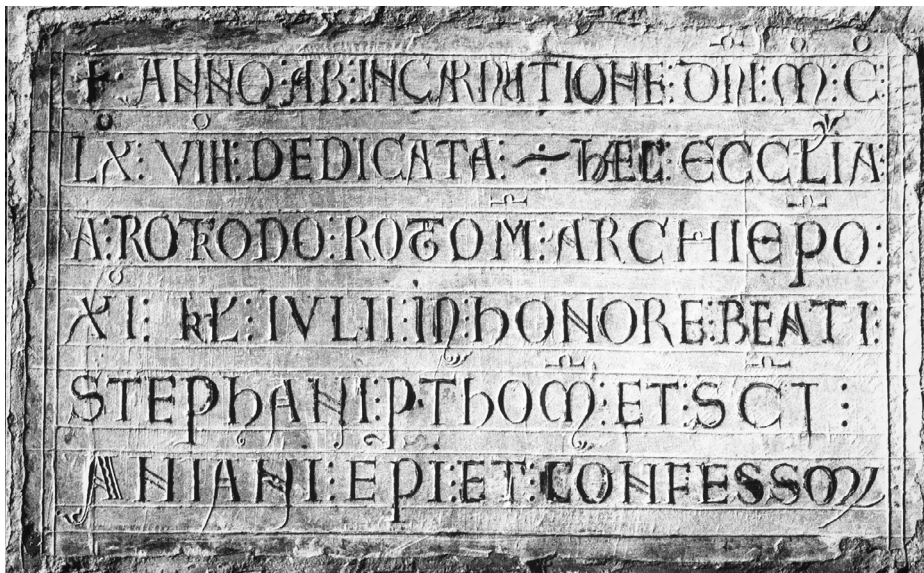 + ANNO : AB : INCARNATIONE : DNI : M : C :
LX : VIII : DEDICATA : ~ : HAEC : ECCLIA :
A : ROTRODO : ROTOM : ARCHIEPO :
XI : KL : IVLII : IN : HONORE : BEATI :
STEPHANI : P THOM : ET : SCI :
ANIANI : EPI : ET : CONFESSOR